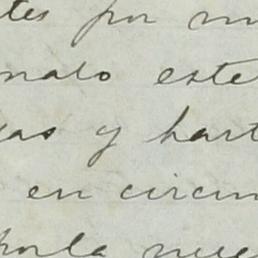 tes por m
nalo este
as y hart
en circun
porla nue